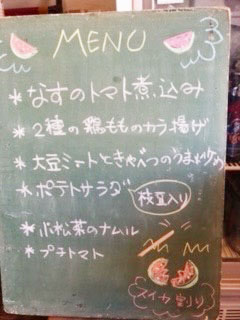 MENU
* なすのトマト煮込み
* 2種の鶏もものカラ揚げ
* 大豆ミートときゃべつのうまい炒め
* ポテトサラダ
枝豆入り
* 小松菜のナムル
* プチトマト
スイカ割り